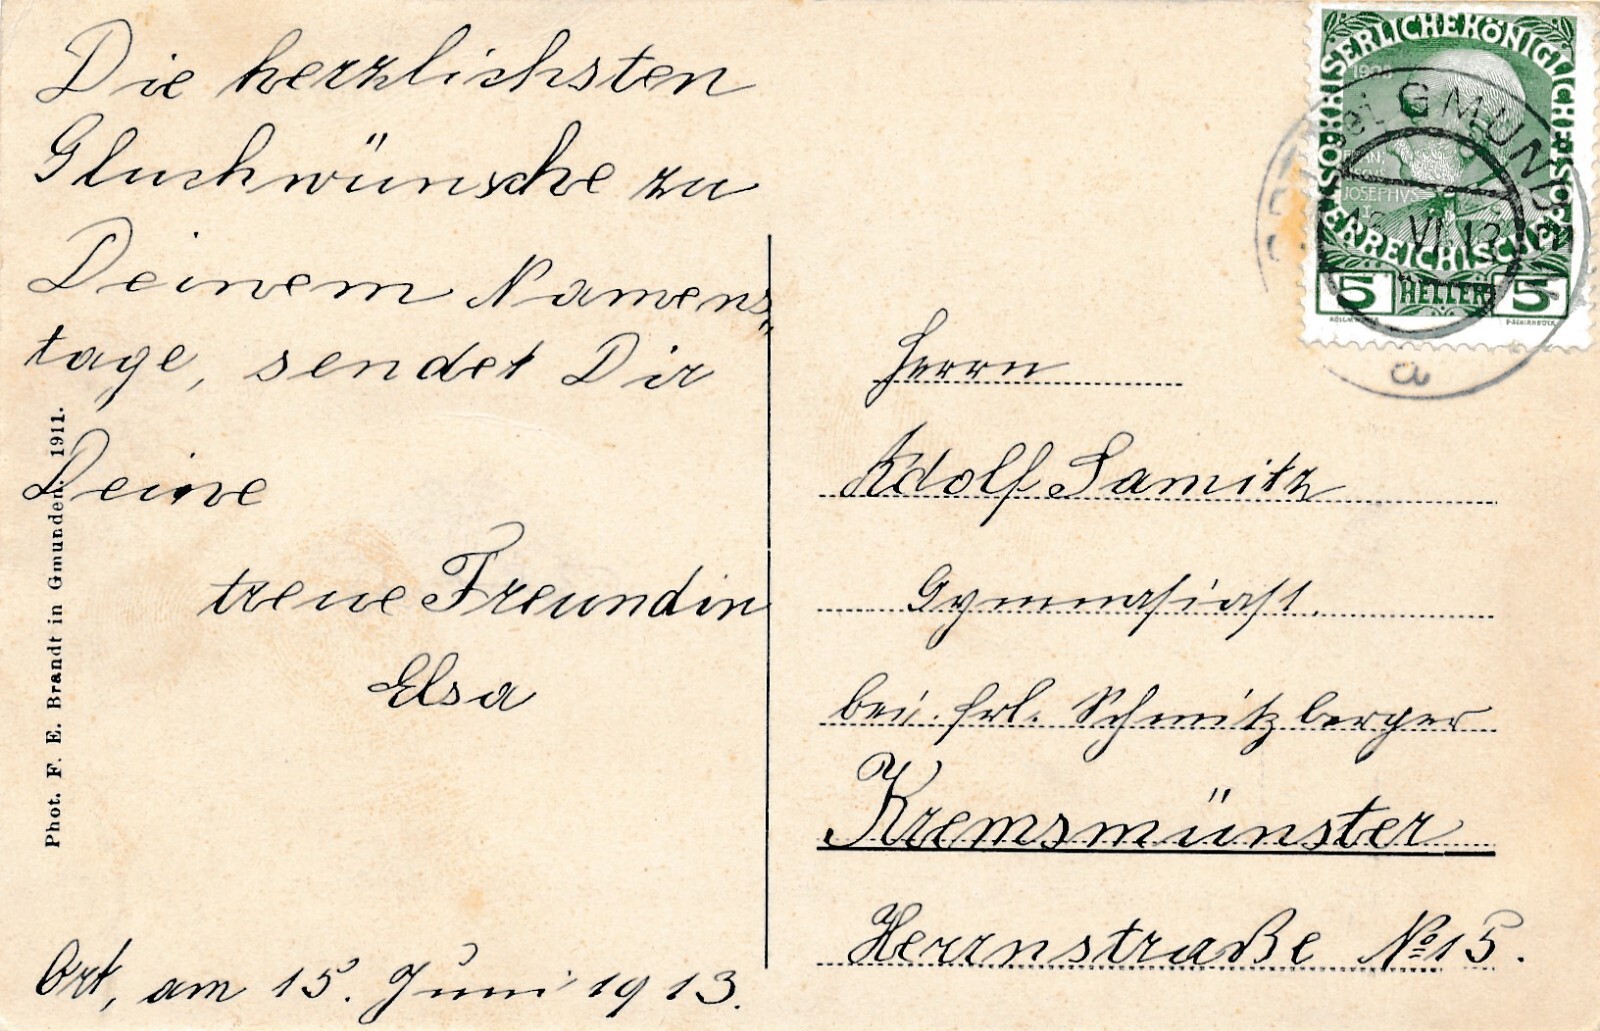 Die herzlichsten
Glückwünsche zu
Deinem Namens„
tage, sendet Dir
Deine
treue Freundin
Elsa
Ort, am 15. Juni 1913.
Phot. F. E. Brandt in Gmunden. 1911.
Herrn
Adolf Samitz
Gymnasiast.
bei Frl. Schmitzberger
Kremsmünster
Herrnstraße № 15.
KAISERLICHE KÖNIGLICHE ÖSTERREICHISCHE POST
1908
FRANC
IOSEPHVS
I
5 HELLER 5
bei GMUNDEN
VI 13
a